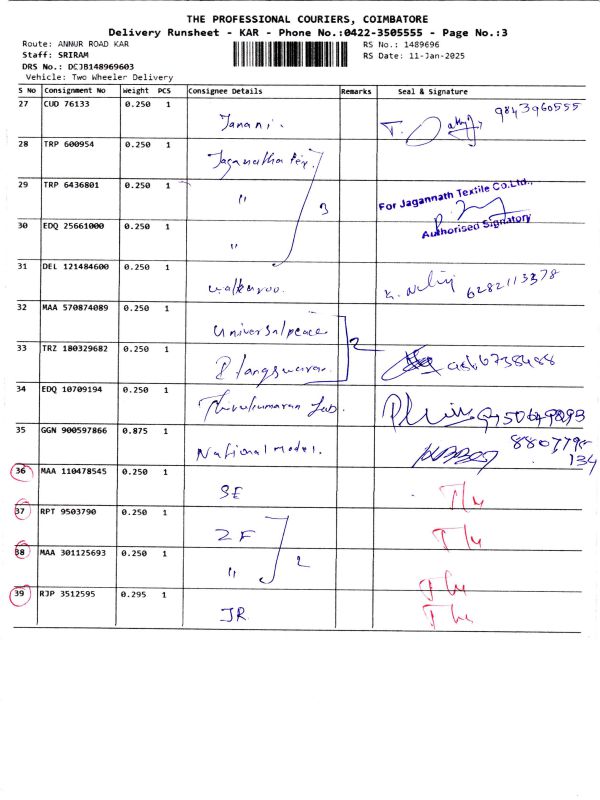 THE PROFESSIONAL COURIERS, COIMBATORE
Delivery Runsheet - KAR - Phone No.:0422-3505555 - Page No.:3
Route: ANNUR ROAD KAR
RS No.: 1489696
Staff: SRIRAM
RS Date: 11-Jan-2025
DRS No.: DCJB148969603
Vehicle: Two Wheeler Delivery
S No Consignment No Weight PCS Consignee Details Remarks Seal & Signature
27 CUD 76133 0.250 1 Janani. 9843960555
28 TRP 600954 0.250 1 Jaganatha Tex.
29 TRP 6436801 0.250 1 " 3 For Jagannath Textile Co.Ltd.,
Authorised Signatory
30 EDQ 25661000 0.250 1 "
31 DEL 121484600 0.250 1 walkaroo. 6282113378
32 MAA 570874089 0.250 1 Universal peace 2
33 TRZ 180329682 0.250 1
34 EDQ 10709194 0.250 1 Thirukumaran Lab.
35 GGN 900597866 0.875 1 National model.
36 MAA 110478545 0.250 1 SE
37 RPT 9503790 0.250 1 ZF
38 MAA 301125693 0.250 1 " 2
39 RJP 3512595 0.295 1 JR